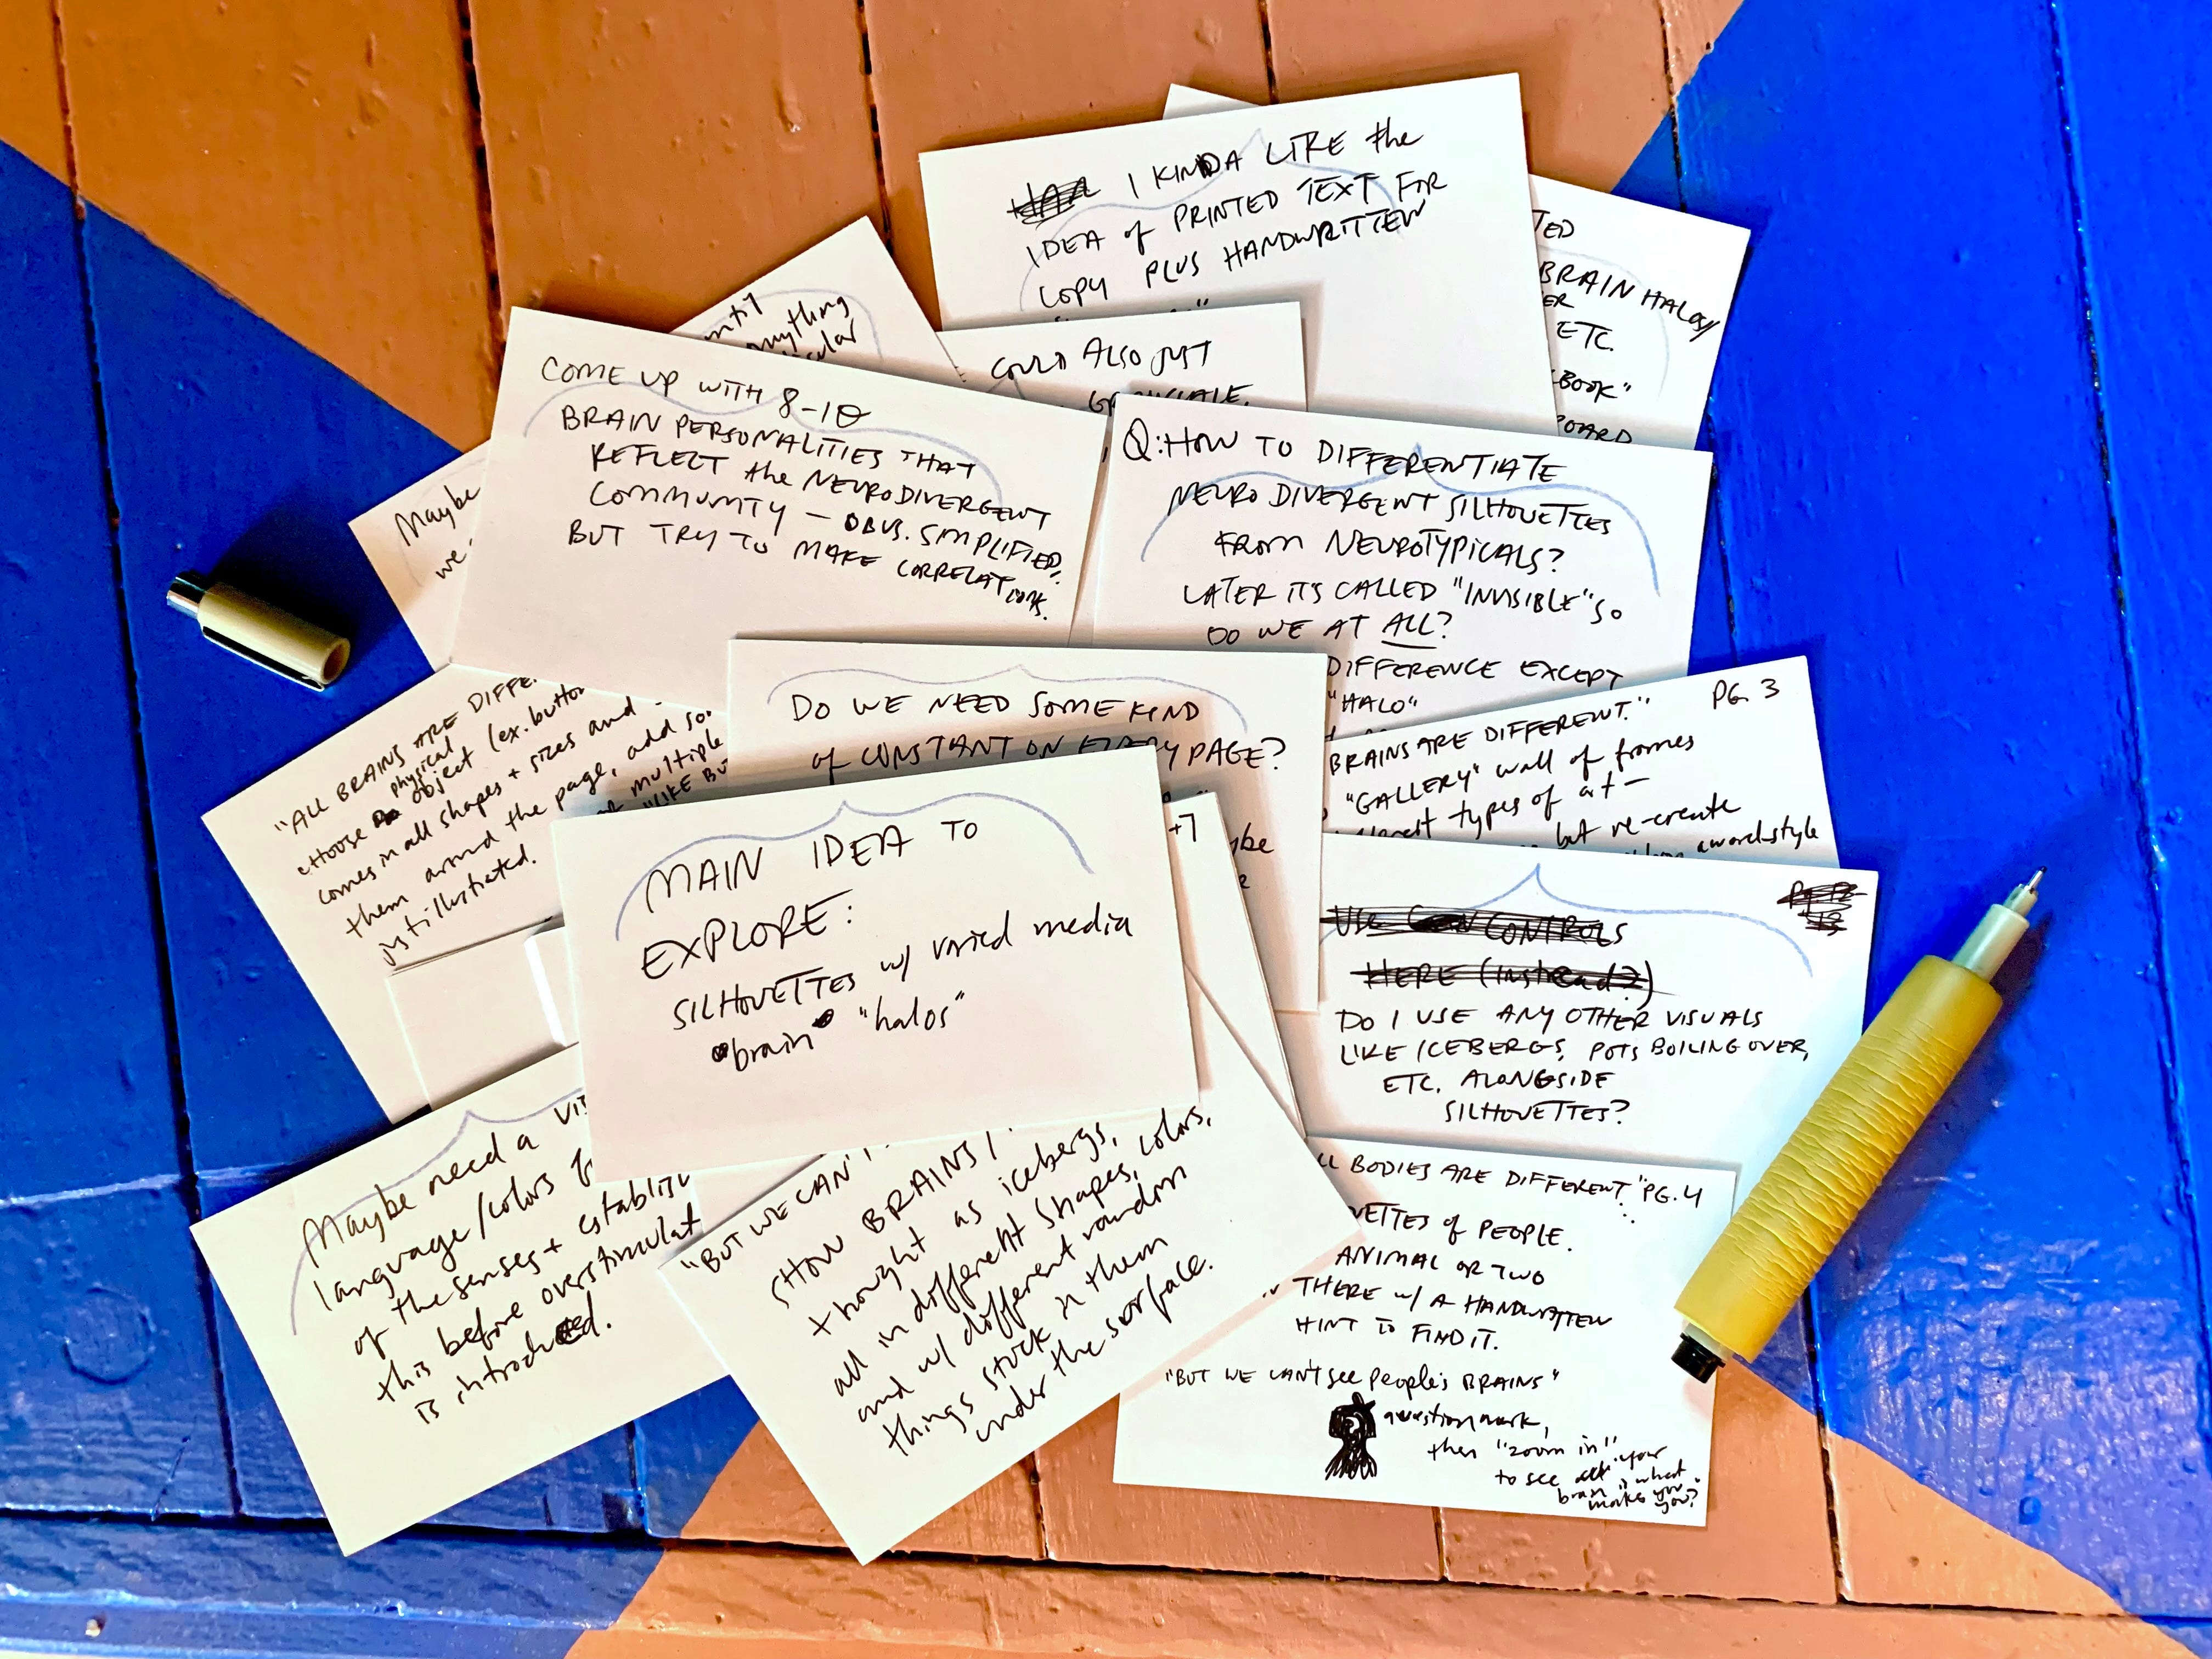 I KINDA LIKE the
IDEA of PRINTED TEXT FOR
COPY PLUS HANDWRITTEN
TED
BRAIN HALOS/
ER
ETC.
BOOK"
BOARD
anything
COULD ALSO JUST
GRAYSCALE.
COME UP WITH 8-10
BRAIN PERSONALITIES THAT
REFLECT the NEURODIVERGENT
COMMUNITY — OBVS. SIMPLIFIED,
BUT TRY TO MAKE CORRELATIONS.
Q: HOW TO DIFFERENTIATE
NEURO DIVERGENT SILHOUETTES
FROM NEUROTYPICALS?
LATER ITS CALLED "INVISIBLE" SO
DO WE AT ALL?
DIFFERENCE EXCEPT
"HALO"
Maybe
we
"ALL BRAINS ARE DIFFE
choose physical
object (ex. button
comes in all shapes + sizes and
them around the page, add so
or multiple
just illustrated.
"LIKE BU
DO WE NEED SOME KIND
of CONSTANT ON EVERY PAGE?
PG. 3
BRAINS ARE DIFFERENT."
"GALLERY" wall of frames
types of art —
but re-create
award-style
MAIN IDEA TO
EXPLORE:
SILHOUETTES w/ varied media
brain "halos"
+7
ybe
USE CONTROLS
HERE (instead?)
DO I USE ANY OTHER VISUALS
LIKE ICEBERGS, POTS BOILING OVER,
ETC. ALONGSIDE
SILHOUETTES?
Maybe need a vi
language/colors f
of the senses + establish
this before overstimulat
is introduced.
"BUT WE CAN'T
SHOW BRAINS/
thought as icebergs,
all in different shapes, colors,
and w/ different random
things stuck in them
under the surface.
LL BODIES ARE DIFFERENT" PG. 4
UETTES of PEOPLE.
ANIMAL OR TWO
THERE w/ A HANDWRITTEN
HINT TO FIND IT.
"BUT WE CAN'T see people's BRAINS"
question mark,
then "zoom in"
to see your
brain is what
makes you
you?